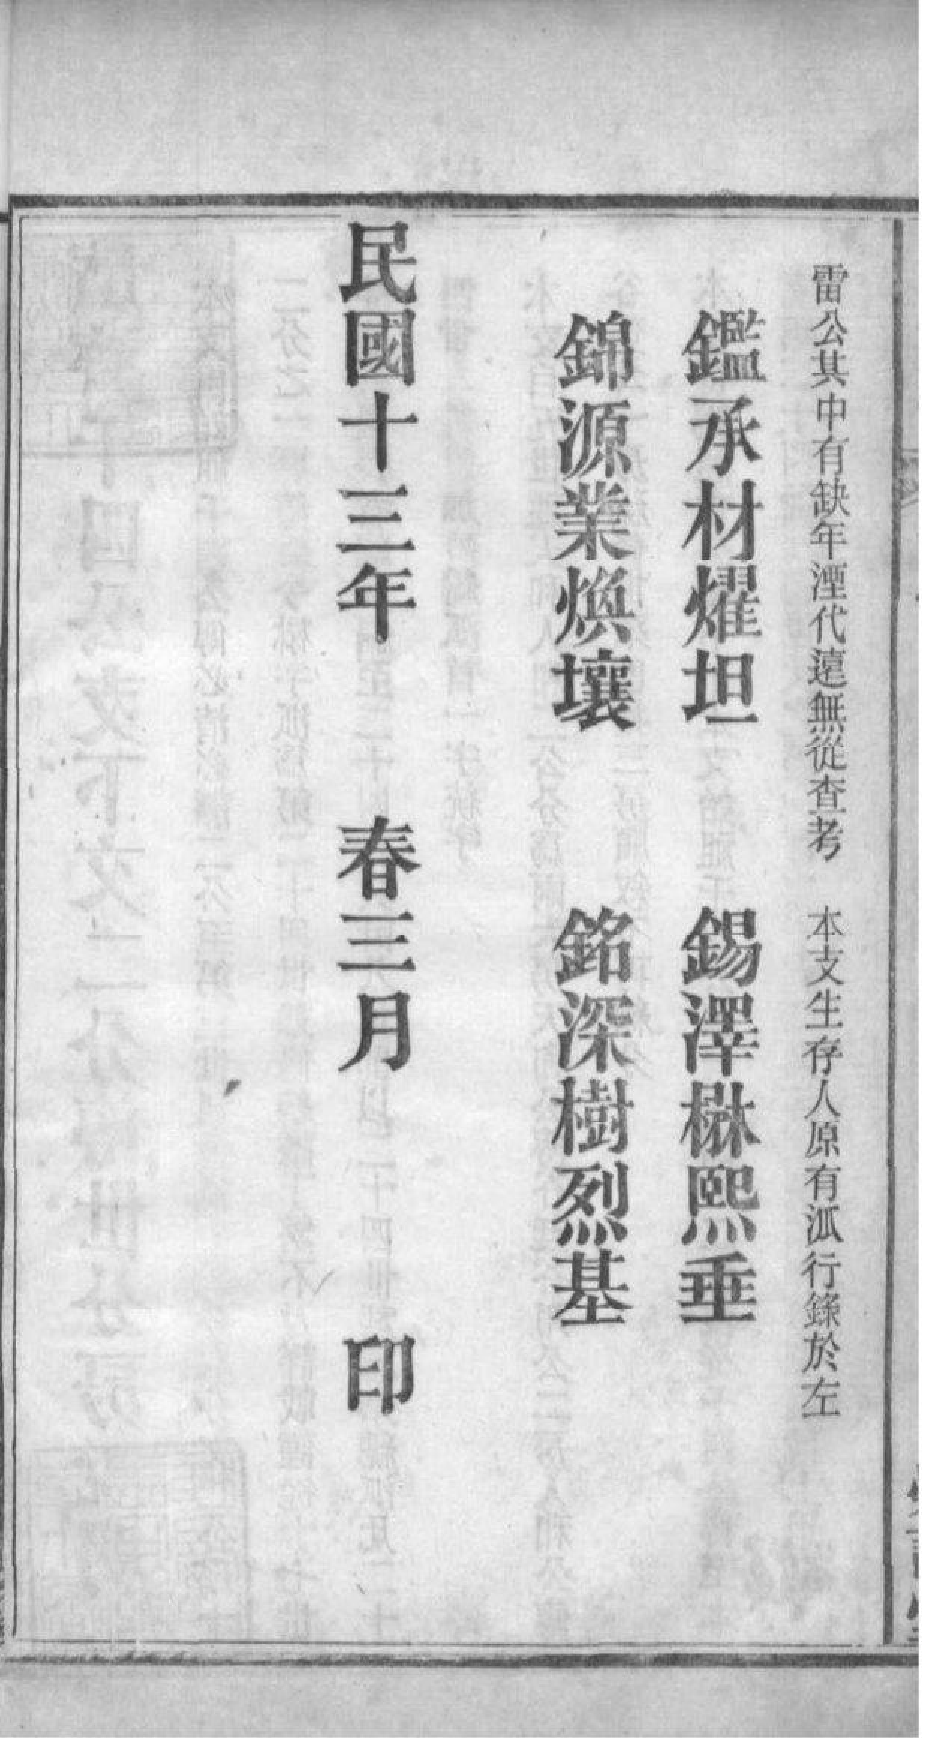 雷公其中有缺年湮代遠無從查考　本支生存人原有派行錄於左
鑑承材燿坦　錫澤楙熙垂
錦源業煥壤　銘深樹烈基
民國十三年　春三月　印